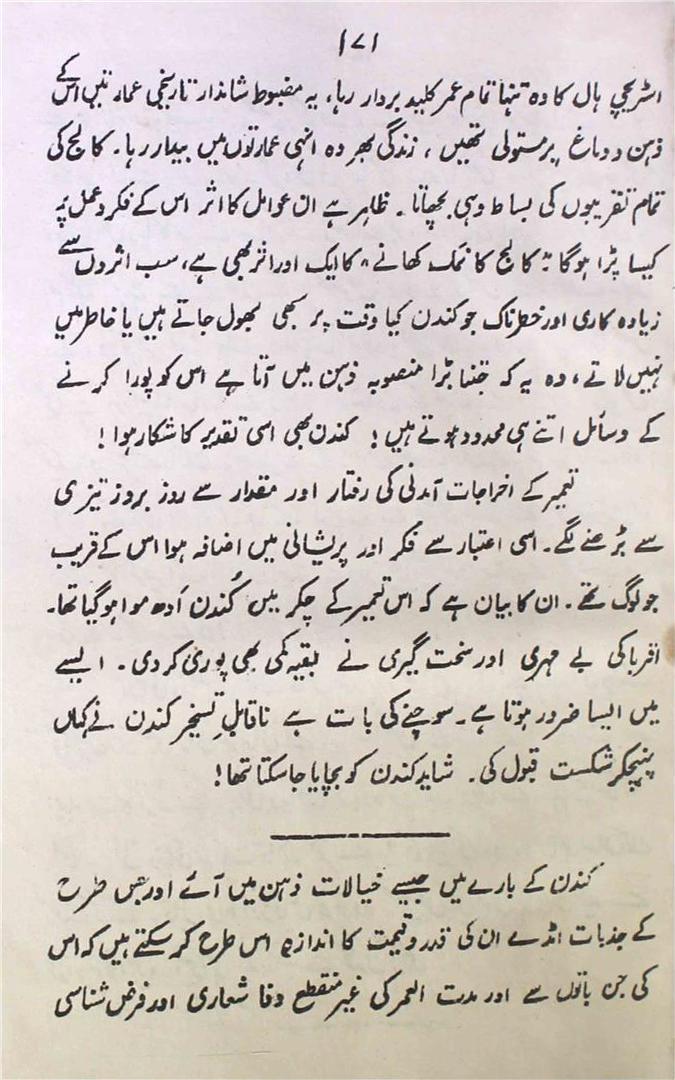 ۱۷۱
اسٹریچی ہال کا وہ تنہا تمام عمر کلید بردار رہا، یہ مضبوط شاندار تاریخی عمارتیں اس کے
ذہن و دماغ پر مستولی تھیں، زندگی بھر وہ انہی عمارتوں میں بیدار رہا۔ کالج کی
تمام تقریبوں کی بساط وہی بچھاتا۔ ظاہر ہے ان عوامل کا اثر اس کے فکر و عمل پر
کیسا پڑا ہوگا "کالج کا نمک کھانے" کا ایک اور اثر بھی ہے، سب اثروں سے
زیادہ کاری اور خطرناک جو کندن کیا وقت پر سبھی بھول جاتے ہیں یا خاطر میں
نہیں لاتے، وہ یہ کہ جتنا بڑا منصوبہ ذہن میں آتا ہے اس کو پورا کرنے
کے وسائل اتنے ہی محدود ہوتے ہیں! کندن بھی اسی تقدیر کا شکار ہوا!
تعمیر کے اخراجات آمدنی کی رفتار اور مقدار سے روز بروز تیزی
سے بڑھنے لگے۔ اسی اعتبار سے فکر اور پریشانی میں اضافہ ہوا اس کے قریب
جو لوگ تھے۔ ان کا بیان ہے کہ اس تعمیر کے چکر میں کُندن اَدھ موا ہو گیا تھا۔
اقربا کی بے مہری اور سخت گیری نے بقیہ کمی بھی پوری کر دی۔ ایسے
میں ایسا ضرور ہوتا ہے۔ سوچنے کی بات ہے ناقابلِ تسخیر کندن نے کہاں
پہنچکر شکست قبول کی۔ شاید کندن کو بچایا جا سکتا تھا!
کندن کے بارے میں جیسے خیالات ذہن میں آئے اور جس طرح
کے جذبات امڈے ان کی قدر و قیمت کا اندازہ اس طرح کر سکتے ہیں کہ اس
کی جن باتوں سے اور مدت العمر کی غیر منقطع وفا شعاری اور فرض شناسی